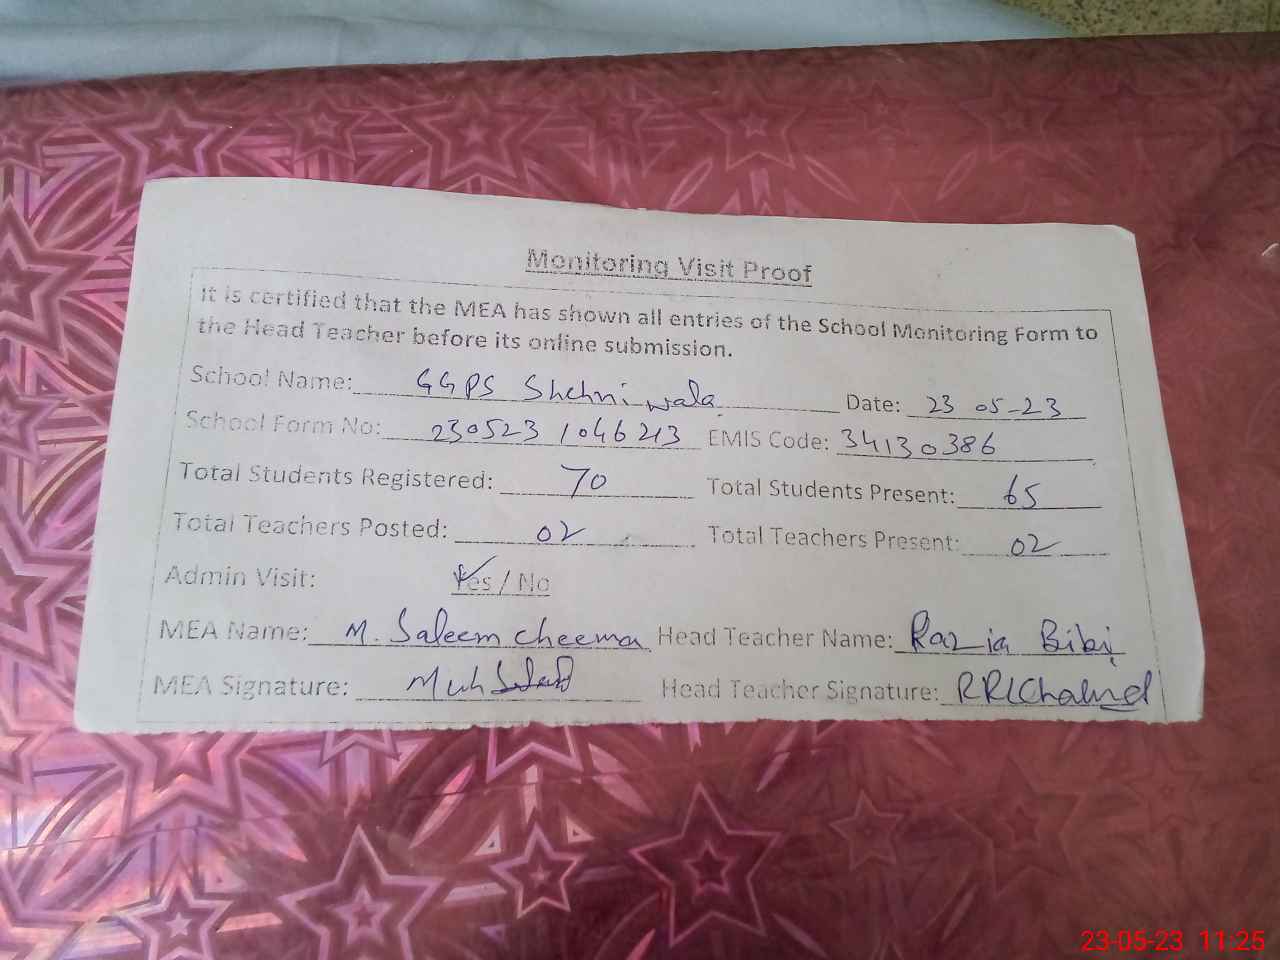 Monitoring Visit Proof
It is certified that the MEA has shown all entries of the School Monitoring Form to
the Head Teacher before its online submission.
School Name: GGPS Shehni wala Date: 23 05-23
School Form No: 230523 1046213 EMIS Code: 34130386
Total Students Registered: 70 Total Students Present: 65
Total Teachers Posted: 02 Total Teachers Present: 02
Admin Visit: Yes / No
MEA Name: M. Saleem cheema Head Teacher Name: Razia Bibi
MEA Signature: Head Teacher Signature:
23-05-23 11:25